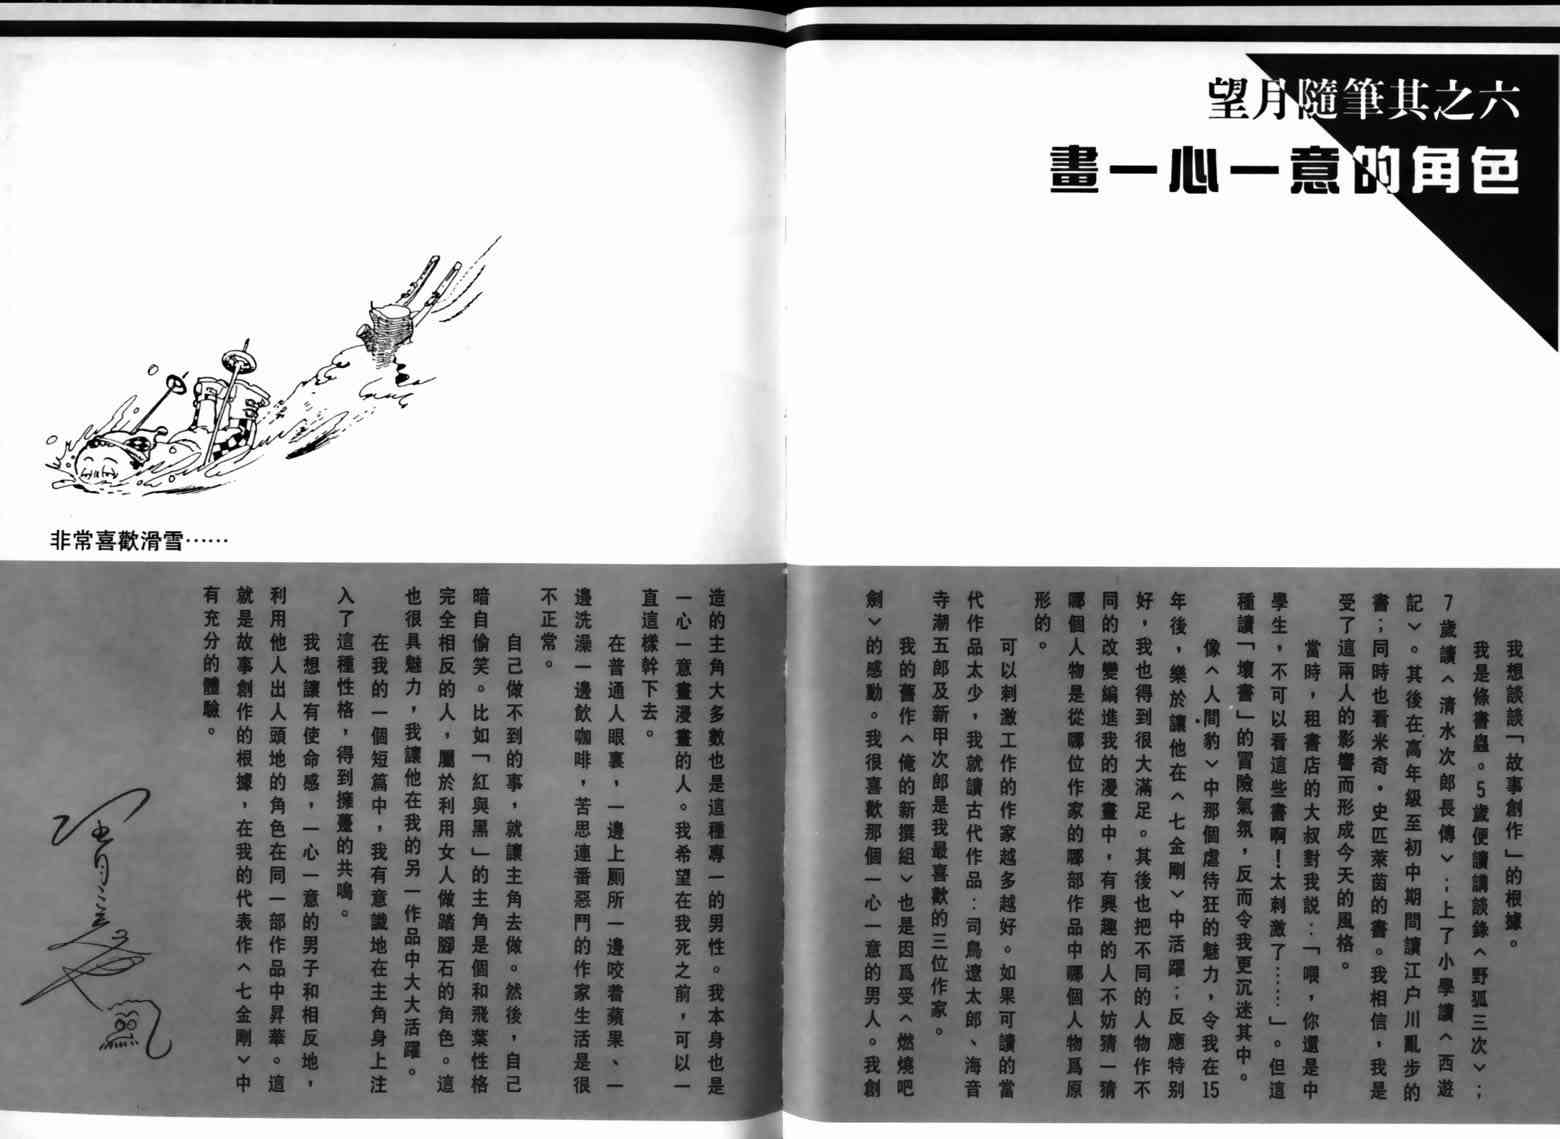 望月隨筆其之六
畫一心一意的角色
我想談談「故事創作」的根據。
我是條書蟲。5歲便讀講談錄〈野狐三次〉;
7歲讀〈清水次郎長傳〉;上了小學讀〈西遊
記〉。其後在高年級至初中期間讀江户川亂步的
書;同時也看米奇·史匹萊茵的書。我相信,我是
受了這兩人的影響而形成今天的風格。
當時,租書店的大叔對我説:「喂,你還是中
學生,不可以看這些書啊!太刺激了……」。但這
種讀「壞書」的冒險氣氛,反而令我更沉迷其中。
像〈人間豹〉中那個虐待狂的魅力,令我在15
年後,樂於讓他在〈七金剛〉中活躍;反應特别
好,我也得到很大滿足。其後也把不同的人物作不
同的改變編進我的漫畫中,有興趣的人不妨猜一猜
哪個人物是從哪位作家的哪部作品中哪個人物爲原
形的。
可以刺激工作的作家越多越好。如果可讀的當
代作品太少,我就讀古代作品:司鳥遼太郎、海音
寺潮五郎及新甲次郎是我最喜歡的三位作家。
我的舊作〈俺的新撰組〉也是因爲受〈燃燒吧
劍〉的感動。我很喜歡那個一心一意的男人。我創
非常喜歡滑雪……
造的主角大多數也是這種專一的男性。我本身也是
一心一意畫漫畫的人。我希望在我死之前,可以一
直這樣幹下去。
在普通人眼裏,一邊上厠所一邊咬着蘋果、一
邊洗澡一邊飲咖啡,苦思連番惡鬥的作家生活是很
不正常。
自己做不到的事,就讓主角去做。然後,自己
暗自偷笑。比如「紅與黑」的主角是個和飛葉性格
完全相反的人,屬於利用女人做踏腳石的角色。這
也很具魅力,我讓他在我的另一作品中大大活躍。
在我的一個短篇中,我有意識地在主角身上注
入了這種性格,得到擁躉的共鳴。
我想讓有使命感,一心一意的男子和相反地,
利用他人出人頭地的角色在同一部作品中昇華。這
就是故事創作的根據,在我的代表作〈七金剛〉中
有充分的體驗。